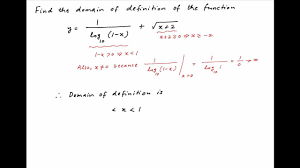 Find the domain of definition of the function
y = 1 / log₁₀ (1-x) + √(x+2)
1-x > 0 ⇒ x < 1    x+2 ≥ 0 ⇒ x ≥ -2
Also, x ≠ 0 because 1 / log₁₀ (1-x) |ₓ₌₀ = 1 / log₁₀ 1 = 1/0 → ∞
∴ Domain of definition is
< x < 1